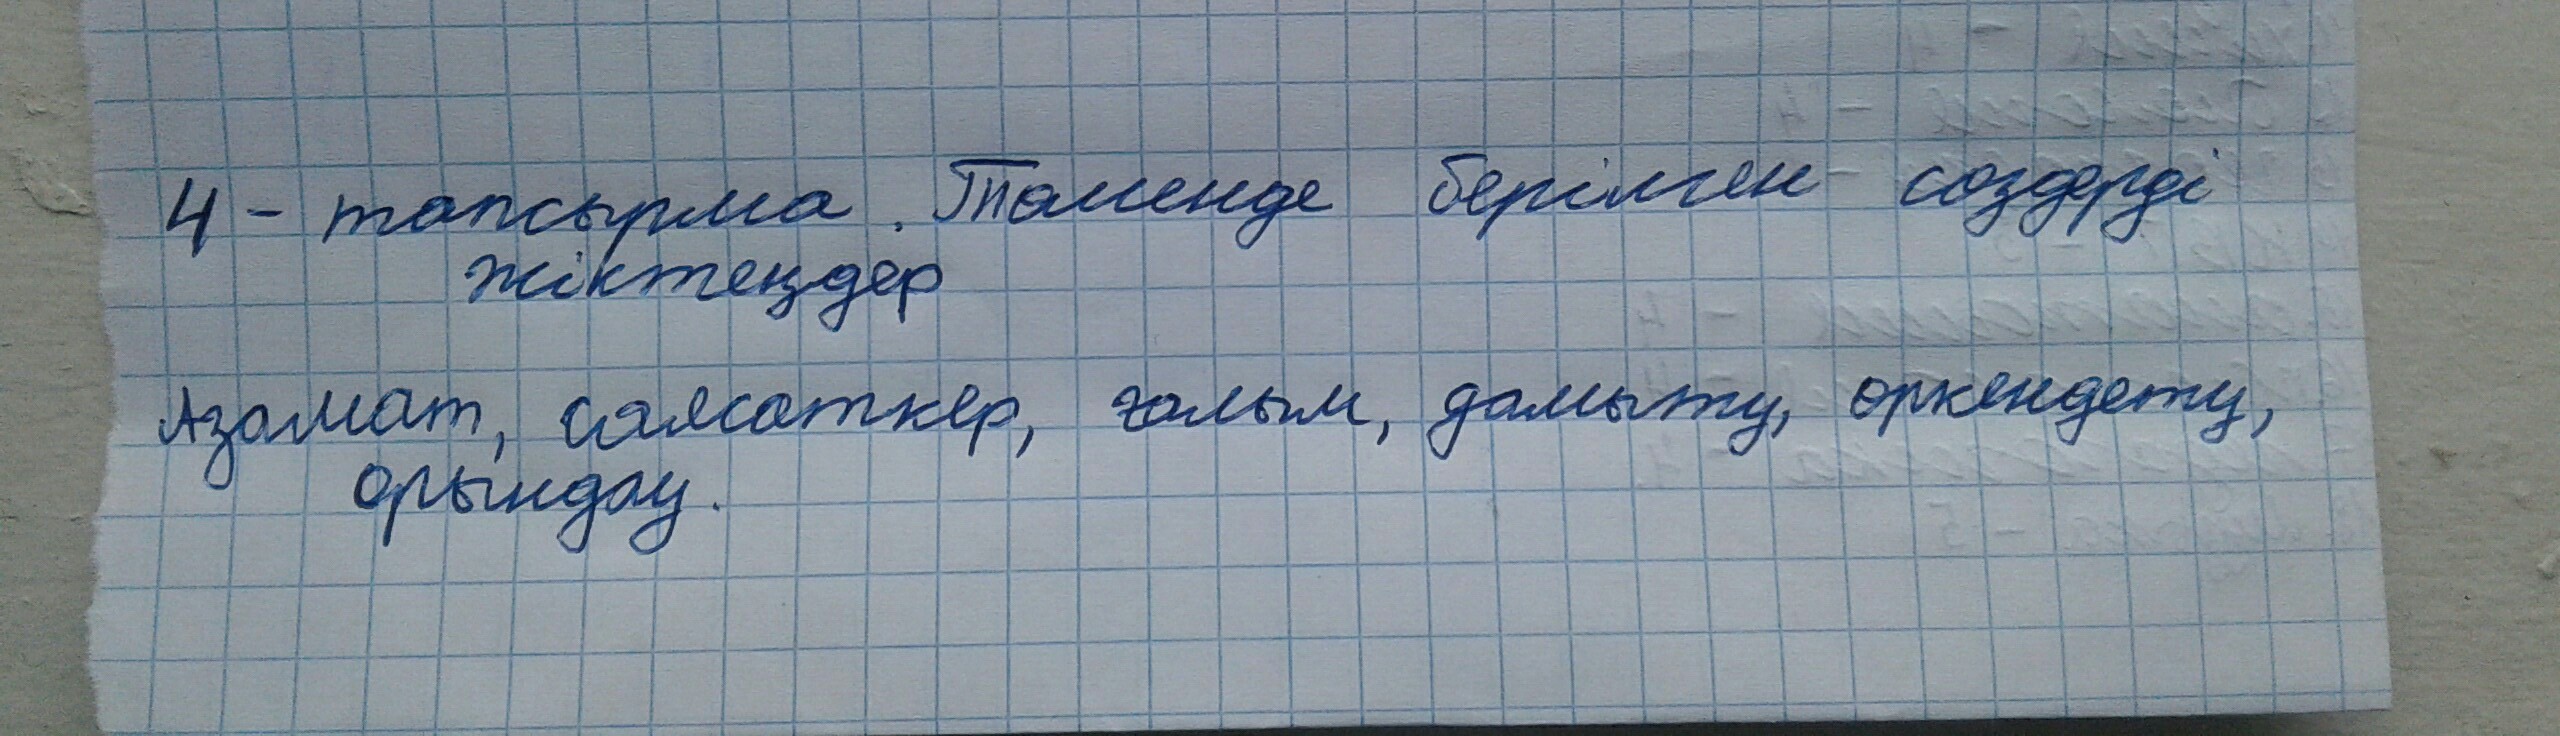 4 - тапсырма. Төменде берілген сөздерді
жіктеңдер
Азамат, саясаткер, ғалым, дамыту, өркендету,
орындау.